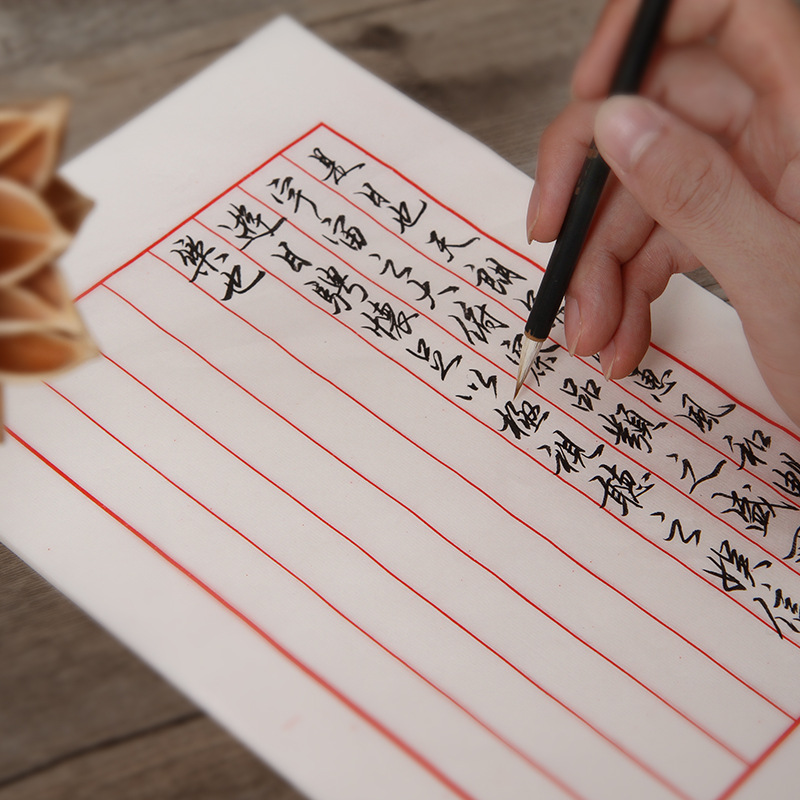 是日也天朗惠風和暢
宇宙之大俯察品類之盛
遊目騁懷足以極視聽之娛信
樂也